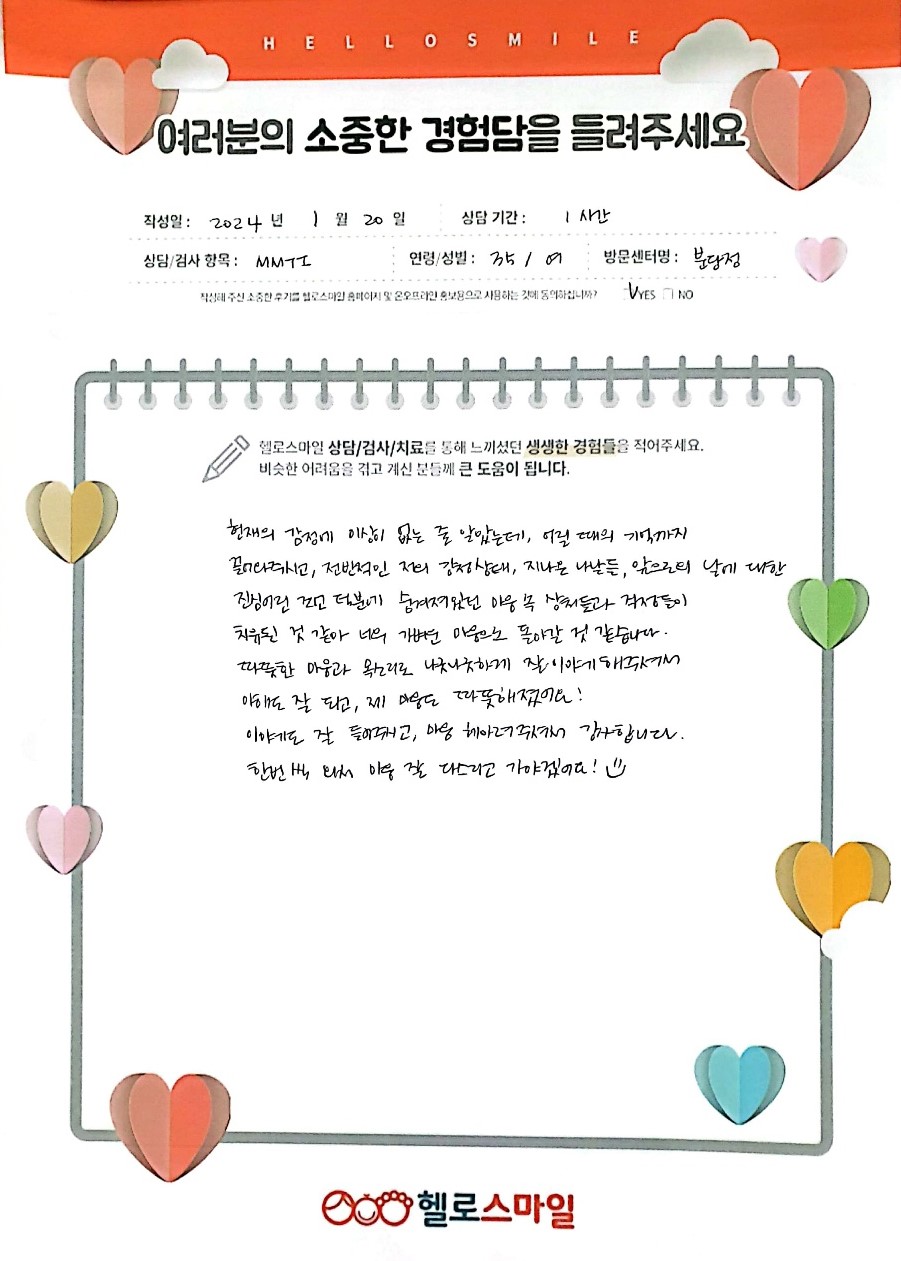 HELLOSMILE
여러분의 소중한 경험담을 들려주세요
작성일 : 2024 년 1 월 20 일 상담 기간 : 1 시간
상담/검사 항목 : MMTI 연령/성별 : 35 / 여 방문센터명 : 분당점
작성해 주신 소중한 후기를 헬로스마일 홈페이지 및 온오프라인 홍보용으로 사용하는 것에 동의하십니까? YES NO
헬로스마일 상담/검사/치료를 통해 느끼셨던 생생한 경험들을 적어주세요.
비슷한 어려움을 겪고 계신 분들께 큰 도움이 됩니다.
현재의 감정에 이상이 없는 줄 알았는데, 어릴 때의 기억까지
끌어내주시고, 전반적인 저의 감정상태, 지나온 나날들, 앞으로의 날에 대한
진심어린 조언 덕분에 숨겨져왔던 마음 속 상처들과 걱정들이
치유된 것 같아 너무 가벼운 마음으로 돌아갈 것 같습니다.
따뜻한 마음과 목소리로 나긋나긋하게 잘 이야기해주셔서
이해도 잘 되고, 제 마음도 따뜻해졌어요!
이야기도 잘 들어주시고, 마음 헤아려주셔서 감사합니다.
한번씩 와서 마음 잘 다스리고 가야겠어요!
헬로스마일